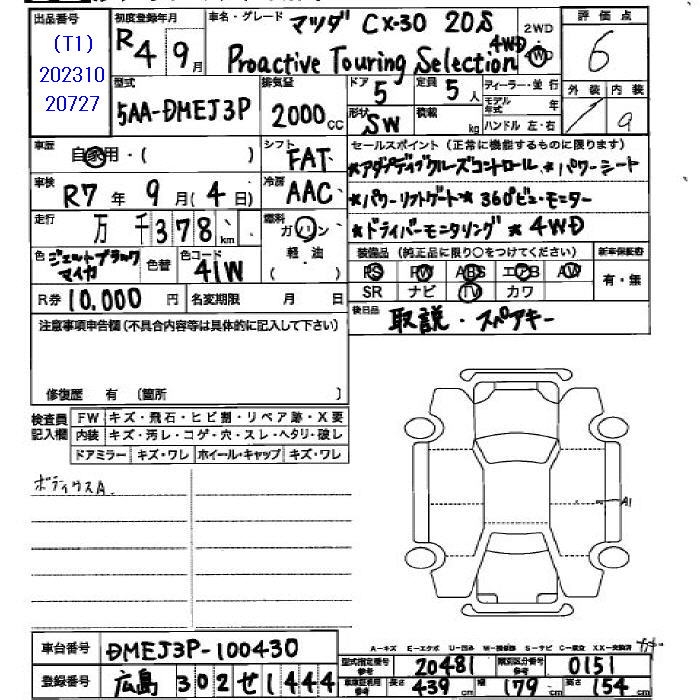 出品番号 初度登録年月 車名・グレード マツダ CX-30 20S 2WD 評価点
(T1) R4 9月 Proactive Touring Selection 4WD 4WD 6
202310
20727
型式 排気量 ドア 定員 ディーラー・並行 外装 内装
5AA-DMEJ3P 2000CC 5 5人 モデル年式 年 9
形状 SW 積載 kg ハンドル 左・右
車歴 自家用・( ) シフト FAT セールスポイント(正常に機能するものに限ります)
*アダプティブクルーズコントロール *パワーシート
車検 R7年 9月(4日) 冷房 AAC *パワーリフトゲート *360°ビューモニター
走行 万千378km 燃料 ガソリン *ドライバーモニタリング *4WD
色 ジェットブラックマイカ 色替 色コード 41W 軽油 ( ) 装備品(純正品に限り○をつけてください) 新車保証書
PS PW ABS エアB AW 有・無
R券 10,000円 名変期限 月 日 SR ナビ TV カワ
注意事項申告欄(不具合内容等は具体的に記入して下さい) 後日品 取説・スペアキー
修復歴 有 (箇所 )
検査員記入欄 FW キズ・飛石・ヒビ割・リペア跡・X要
内装 キズ・汚レ・コゲ・穴・スレ・ヘタリ・破レ
ドアミラー キズ・ワレ ホイール・キャップ キズ・ワレ
A1
A-キズ E-エクボ U-凹み W-補修跡 S-サビ C-腐食 XX-交換済
車台番号 DMEJ3P-100430
型式指定番号 20481 類別区分番号 0151
登録番号 広島 302 せ 1444
車庫証明用参考 長さ参考 439cm 幅参考 179cm 高さ参考 154cm